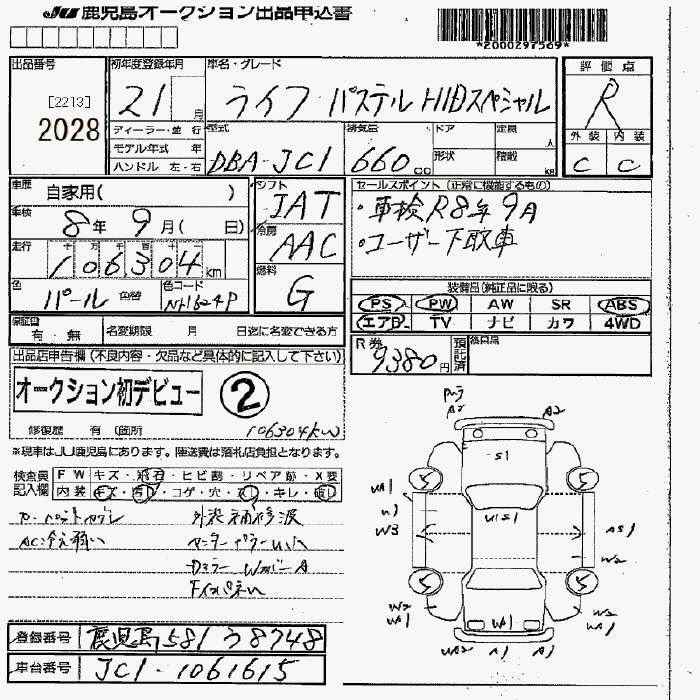 JU 鹿児島オークション出品申込書
*2000297569*
出品番号
[2213]
2028
初年度登録年月
21 月
車名・グレード
ライフ パステル HIDスペシャル
評価点
R
外装 内装
C C
ディーラー・並行
モデル年式 年
ハンドル 左・右
型式
DBA-JC1
排気量
660 cc
ドア
形状
定員
人
積載
KG
車歴 自家用( )
車検 8年 9月( 日)
走行 十 万 千 百 十 一
106304 km
色 パール 色替
色コード NH624P
シフト
IAT
冷房
AAC
燃料
G
セールスポイント (正常に機能するもの)
・車検R8年9月
・ユーザー下取車
装備品(純正品に限る)
PS PW AW SR ABS
エアB TV ナビ カワ 4WD
R券
9380円
預託済
後日品
保証書
有・無
名変期限 月 日迄に名変できる方
出品店申告欄(不良内容・欠品など具体的に記入して下さい)
オークション初デビュー
②
106304km
修復歴 有 (箇所
※現車はJU鹿児島にあります。陸送費は落札店負担となります。
検査員記入欄
FW キズ・飛石・ヒビ割・リペア跡・X要
内装 キズ・汚れ・コゲ・穴・・キレ・
AC冷え弱い
外装補修波
登録番号 鹿児島581 78748
車台番号 JC1-1061615
A2 A2
S1
UA1
U1
W3
U1S1
AS1
W2
S S
S S
W2
WA1
W2
WA1
WA1
UA2 A1 A1